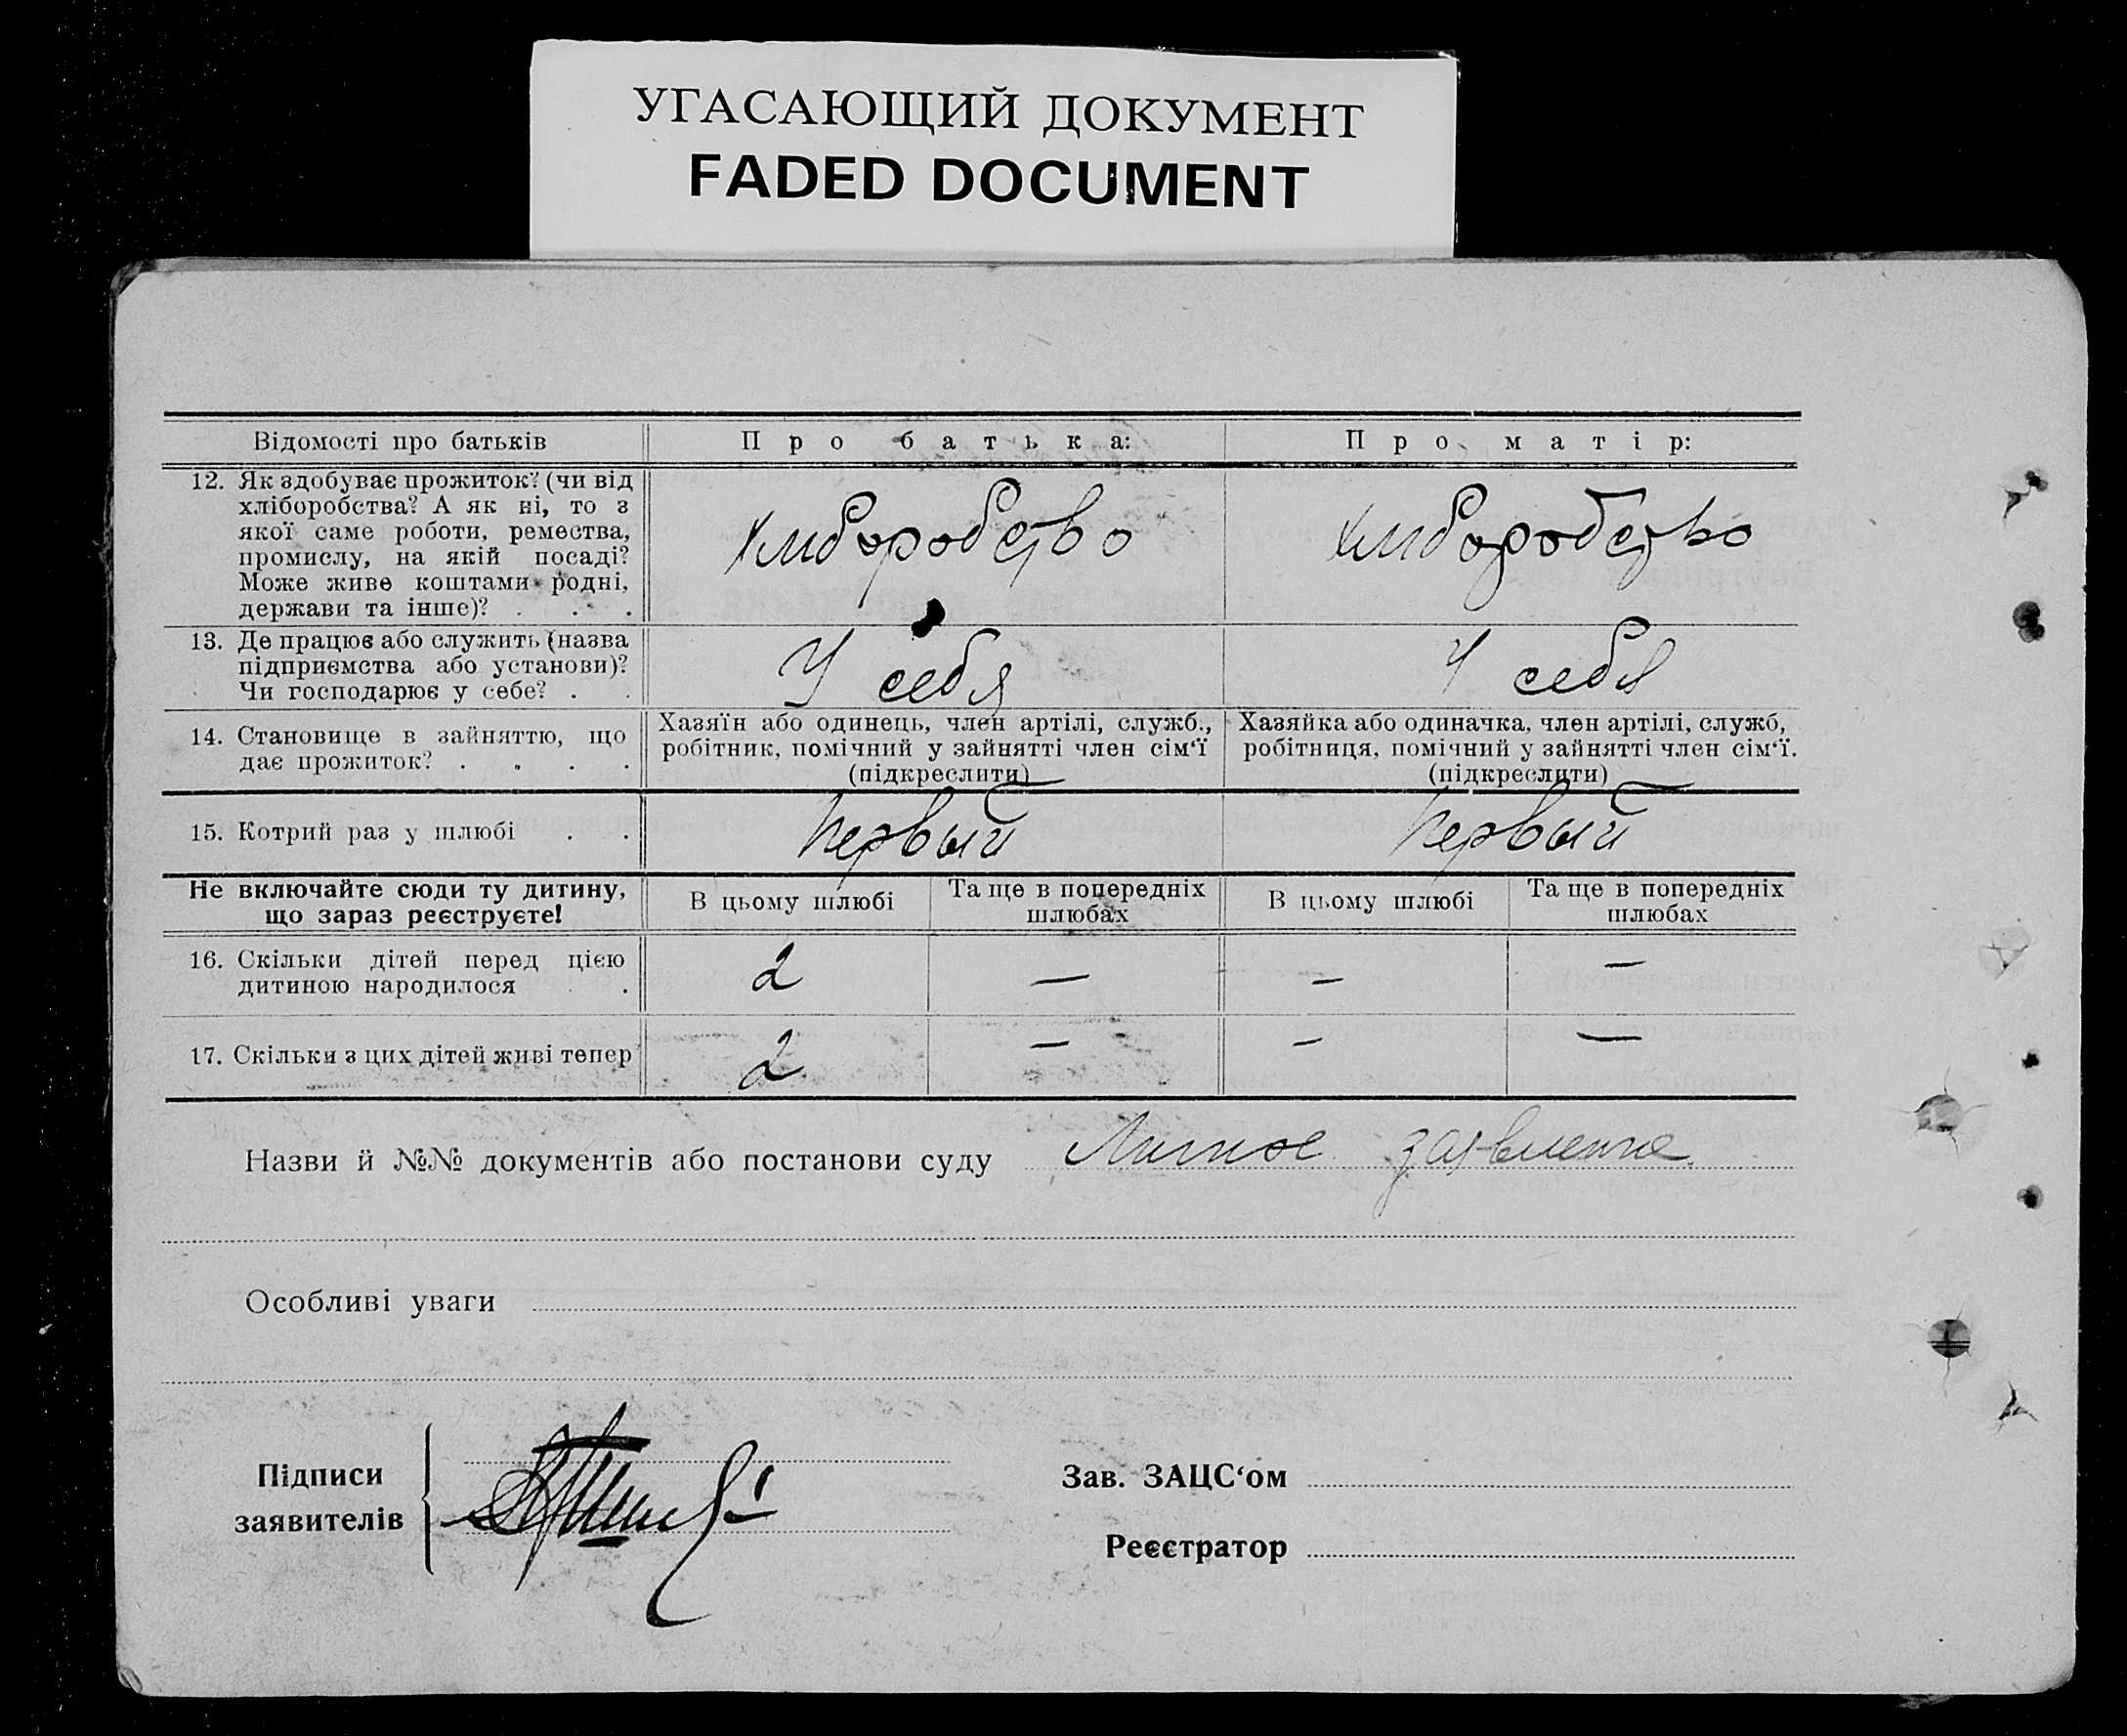 УГАСАЮЩИЙ ДОКУМЕНТ
FADED DOCUMENT
Відомості про батьків
Про батька:
Про матір:
12. Як здобуває прожиток? (чи від
хліборобства? А як ні, то з
якої саме роботи, ремества,
промислу, на якій посаді?
Може живе коштами родні,
держави та інше)? . . .
хлиборобство
хлиборобство
13. Де працює або служить (назва
підприємства або установи)?
Чи господарює у себе? . .
У себя
У себя
14. Становище в зайняттю, що
дає прожиток? . . . .
Хазяїн або одинець, член артілі, служб.,
робітник, помічний у зайнятті член сім‘ї
(підкреслити)
Хазяйка або одиначка, член артілі, служб,
робітниця, помічний у зайнятті член сім‘ї.
(підкреслити)
15. Котрий раз у шлюбі . .
Первый
Первый
Не включайте сюди ту дитину,
що зараз реєструєте!
В цьому шлюбі
Та ще в попередніх
шлюбах
В цьому шлюбі
Та ще в попередніх
шлюбах
16. Скільки дітей перед цією
дитиною народилося . .
2 — — —
17. Скільки з цих дітей живі тепер
2 — — —
Назви й №№ документів або постанови суду Личное заявление
Особливі уваги
Підписи
заявителів
Зав. ЗАЦС‘ом
Реєстратор